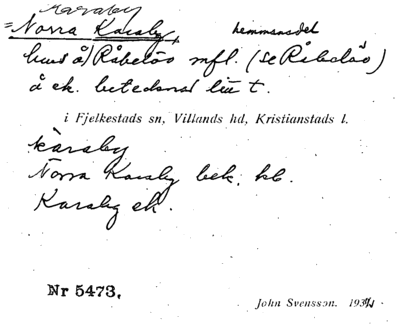 Karaby
= Norra Karaby, hemmansdel
(se Råbelöv)
å ek. betecknad litt t.
i Fjelkestads sn, Villands hd, Kristianstads l.
karaby
Norra Karaby bek. hb.
Karaby ek.
Nr 5473.
John Svensson. 1934.